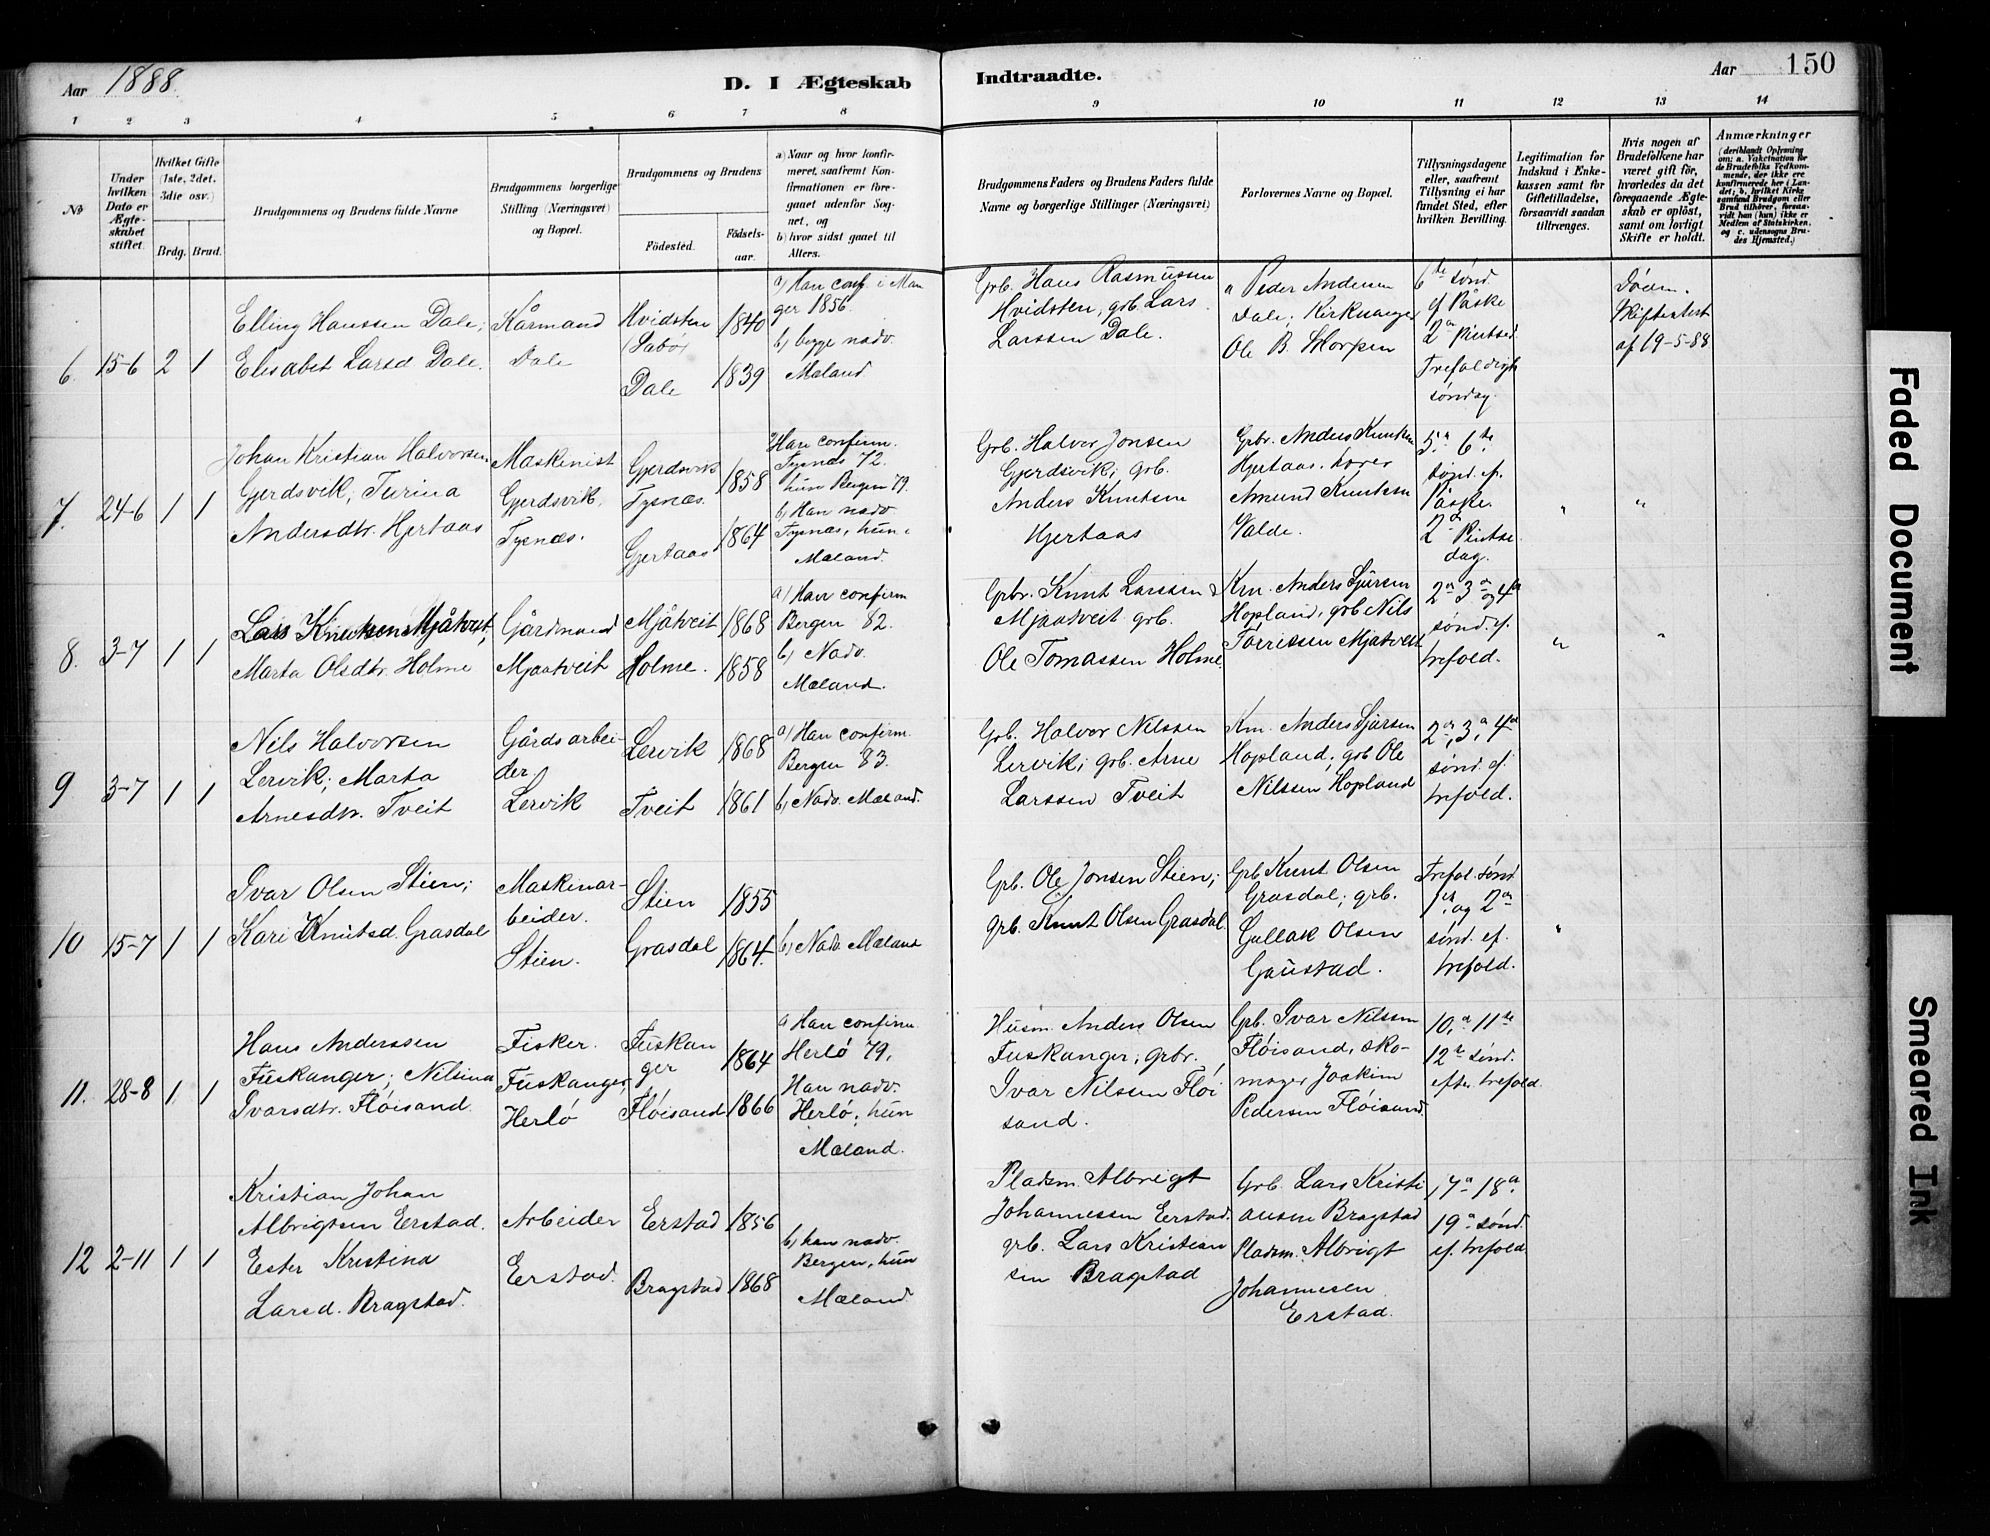 Aar 1888.
D. I Ægteskab Indtraadte.
Aar 150
1 2 3 4 5 6 7 8 9 10 11 12 13 14
№
Under hvilken Dato er Ægteskabet stiftet.
Hvilket Gifte (1ste, 2det, 3die osv.)
Brdg. Brud.
Brudgommens og Brudens fulde Navne
Brudgommens borgerlige Stilling (Næringsvei) og Bopæl.
Brudgommens og Brudens
Födested.
Födselsaar.
a) Naar og hvor konfirmeret, saafremt Konfirmationen er foregaaet udenfor Sognet, og
b) hvor sidst gaaet til Alters.
Brudgommens Faders og Brudens Faders fulde Navne og borgerlige Stillinger (Næringsvei)
Forlovernes Navne og Bopæl.
Tillysningsdagene eller, saafremt Tillysning ei har fundet Sted, efter hvilken Bevilling.
Legitimation for Indskud i Enkekassen samt for Giftetilladelse, forsaavidt saadan tiltrænges.
Hvis nogen af Brudefolkene har været gift för, hvorledes da det foregaaende Ægteskab er oplöst, samt om lovligt Skifte er holdt.
Anmærkninger
(deriblandt Oplysning om: a. Vakcination for de Brudefolks Vedkommende, der ikke ere konfirmerede her i Landet; b. hvilket Kirkesamfund Brudgom eller Brud tilhörer, forsaavidt han (hun) ikke er Medlem af Statskirken, og c. udensogns Brudes Hjemsted.)
6. 15-6 2 1
Elling Hanssen Dale;
Elisabet Larsd Dale.
Kårmand
Dale
Hvidsten
Dale
1840
1839
a) Han conf. i Man
ger 1856.
b) begge nadv.
Mæland.
Grb. Hans Rasmussen
Hvidsten, grb. Lars
Larssen Dale.
Peder Andersen
Dale; Kirkesanger
Ole B. Skorpen
6te sønd
ef Påske
2den Pintsed
Trefoldigh
søndag.
Skifteattest
af 19-5-88
7. 24-6 1 1
Johan Kristian Halvorsen
Gjerdsvik; Turina
Andersdtr. Hjertaas
Maskinist
Gjerdsvik,
Tysnæs.
Gjerdsvik
Tysnæs.
Gjertaas
1858
1864
a) Han confirm.
Tysnæs 72.
hun Bergen 79.
b) Han nadv.
Tysnæs, hun i
Mæland.
Grb. Halvor Jonsen
Gjerdsvik; grb.
Anders Knutsen
Hjertaas
Grbr. Anders Knutsen
Hjertaas,
Amund Knutsen
Valde.
5te 6te
sønd. ef.
Påske
2den Pintse
dag.
" "
8. 3-7 1 1
Lars Knutsen Mjåtveit,
Marta Olsdtr. Holme
Gårdmand
Mjaatveit
Mjåtveit
Holme.
1868
1858
a) Han confirm
Bergen 82.
b) Nadv.
Mæland.
Grbr. Knut Larssen
Mjaatveit grb.
Ole Tomassen Holme
Km. Anders Sjursen
Hopland, grb Nils
Torrissen Mjåtveit
2den 3die og 4de
sønd. ef.
trefold.
" "
9 3-7 1 1
Nils Halvorsen
Lervik; Marta
Arnesdtr. Tveit
Gårdsarbei-
der.
Lervik
Lervik
Tveit
1868
1861
a) Han confirm.
Bergen 83.
b) Nadv. Mæland.
Grb. Halvor Nilssen
Lervik; grb. Arne
Larssen Tveit
Km. Anders Sjursen
Hopland; grb Ole
Nilssen Hopland
2den, 3die, 4de
sønd. ef.
trefold.
10 15-7 1 1
Ivar Olsen Stien;
Kari Knutsd. Grasdal
Maskinar-
beider.
Stien.
Stien
Grasdal
1855
1864.
b) Nadv. Mæland
Grb. Ole Jonsen Stien;
grb. Knut Olsen Grasdal
Grb Knut Olsen
Grasdal; grb.
Gullak Olsen
Gaustad.
Trefol. sønd
1ste og 2den
sønd. ef.
trefold.
"
11. 28-8 1 1
Hans Anderssen
Fuskanger; Nilsina
Ivarsdtr. Fløisand.
Fisker.
Fuskanger,
Herlö
Fuskan
ger
Fløisand
1864
1866
a) Han confirm
Herlö 79.
Han nadv.
Herlö; hun
Mæland.
Husm. Anders Olsen
Fuskanger; grbr.
Ivar Nilssen Fløi
sand.
Grb. Ivar Nilssen
Fløisand, sko-
mager Joakim
Pedersen Fløisand.
10de 11te
12te sønd.
efter trefold.
12 2-11 1 1
Kristian Johan
Albrigtsen Erstad.
Ester Kristina
Larsd. Bragstad.
Arbeider
Erstad.
Erstad
Bragstad
1856
1868
b) han nadv.
Bergen, hun
Mæland
Pladsm Albrigt
Johannessen Erstad.
grb. Lars Kristian
sen Bragstad
Grb. Lars Kristi
ansen Bragstad
Pladsm. Albrigt
Johannesen
Erstad.
17de 18de
19de sønd.
ef. trefold
Faded Document
Smeared Ink